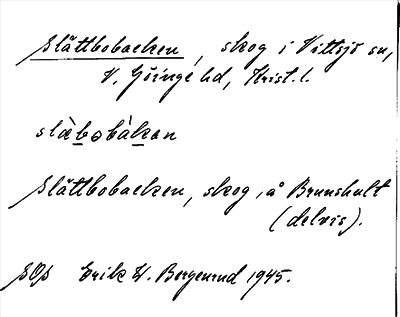 Slättbobacken, skog i Vittsjö sn,
V. Göinge hd, Krist. l.
slæ̀bobàkan
Slättbobacken, skog, å Brunshult
(delvis).
SOS Erik W. Bergenrud 1945.